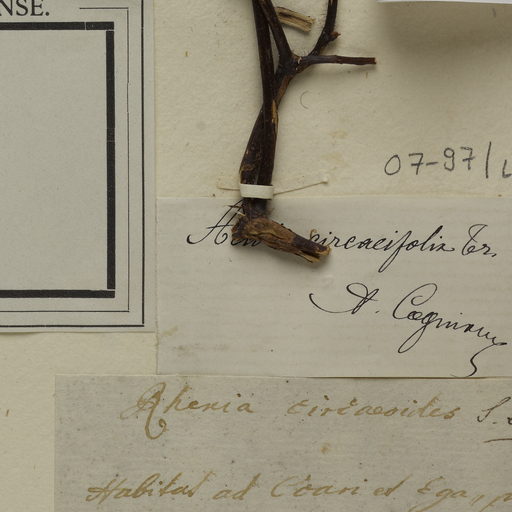 NSE.
07-97/
circaeifolia Tr.
A. Cogniaux
Rhexia circaeoides
Habitat ad Coari et Ega,